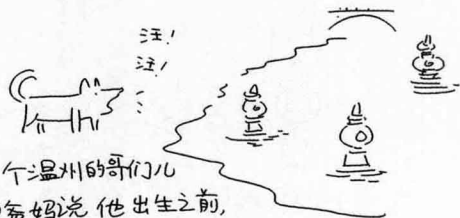 汪！
汪！
个温州的哥们儿
爸妈说 他出生之前，